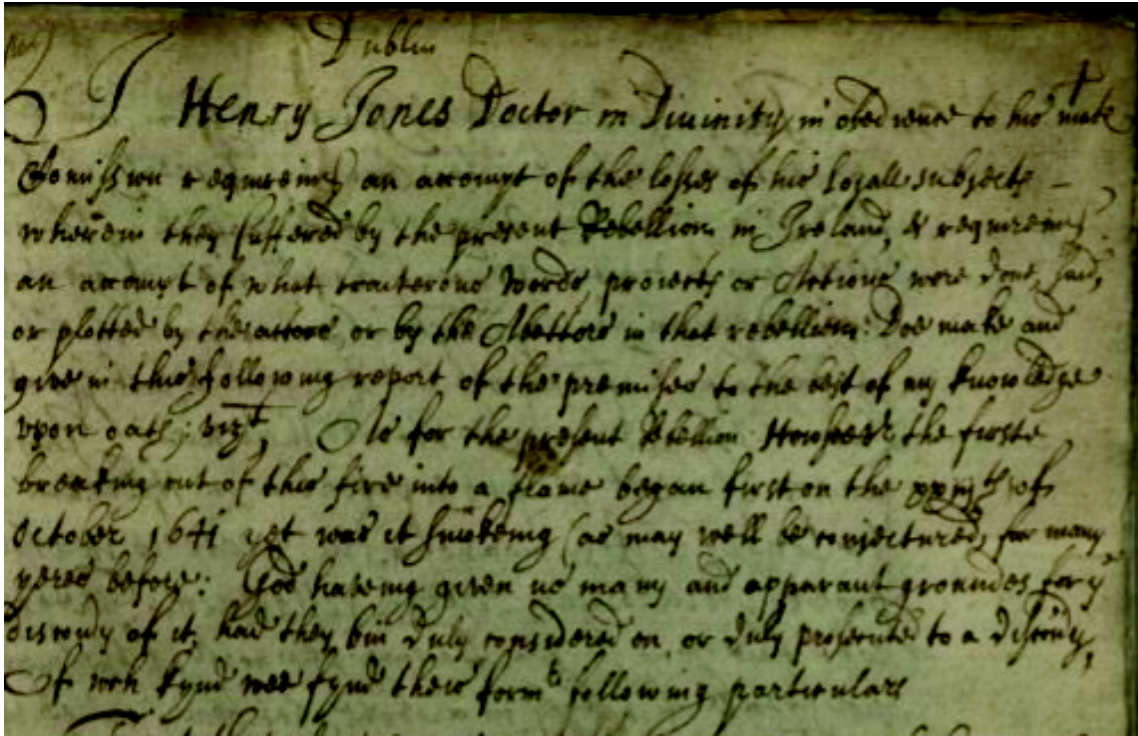 Dublin
I Henry Jones Doctor in Divinity in obedience to his matie
Comission requireing an accompt of the losses of his loyall subiects
wherein they suffered by the present Rebellion in Ireland, & requireing
an accompt of what traiterous words, proiects or Actions were done, said,
or plotted by the actors or by the Abettors in that rebellion: Doe make and
give in this following report of the premises to the best of my knowledge
vpon oath; vizt, As for the present Rebellion Howsoever the firste
breaking out of this fire into a flame began first on the xxiijth of
October 1641 yet was it smokeing (as may well be coniectured) for many
yeres before: God haveing given us many and apparant groundes for ye
discovry of it, had they bin duly considered on, or duly prosecuted to a discovry,
Of wch kynd wee fynd theis following particulars